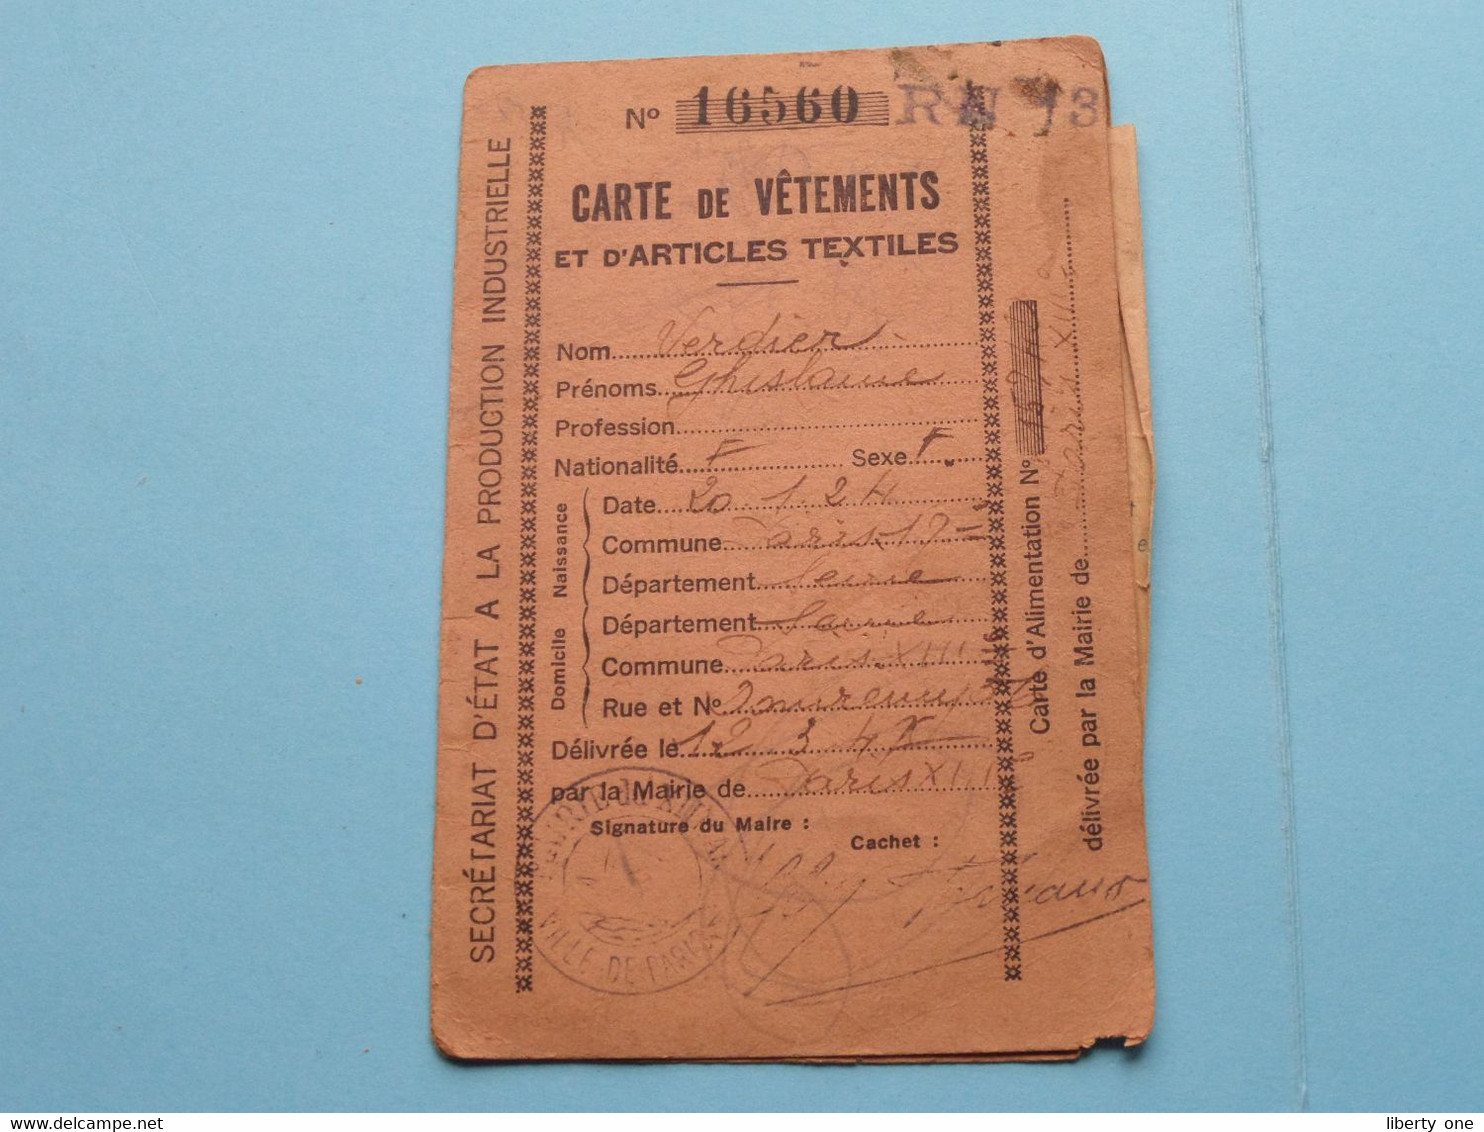 No 16560 RN 13
CARTE DE VÊTEMENTS
ET D'ARTICLES TEXTILES
Nom Verdier
Prénoms Ghislaine
Profession
Nationalité F Sexe F.
Naissance
Date 20.1.24
Commune Paris 17e
Département Seine
Domicile
Département Seine
Commune Paris XIIIe
Rue et No
Délivrée le 12/3 4
par la Mairie de Paris XIIIe
Signature du Maire :
Cachet :
VILLE DE PARIS
SECRÉTARIAT D'ÉTAT A LA PRODUCTION INDUSTRIELLE
Carte d'Alimentation No
délivrée par la Mairie de Paris XIIIe
liberty one